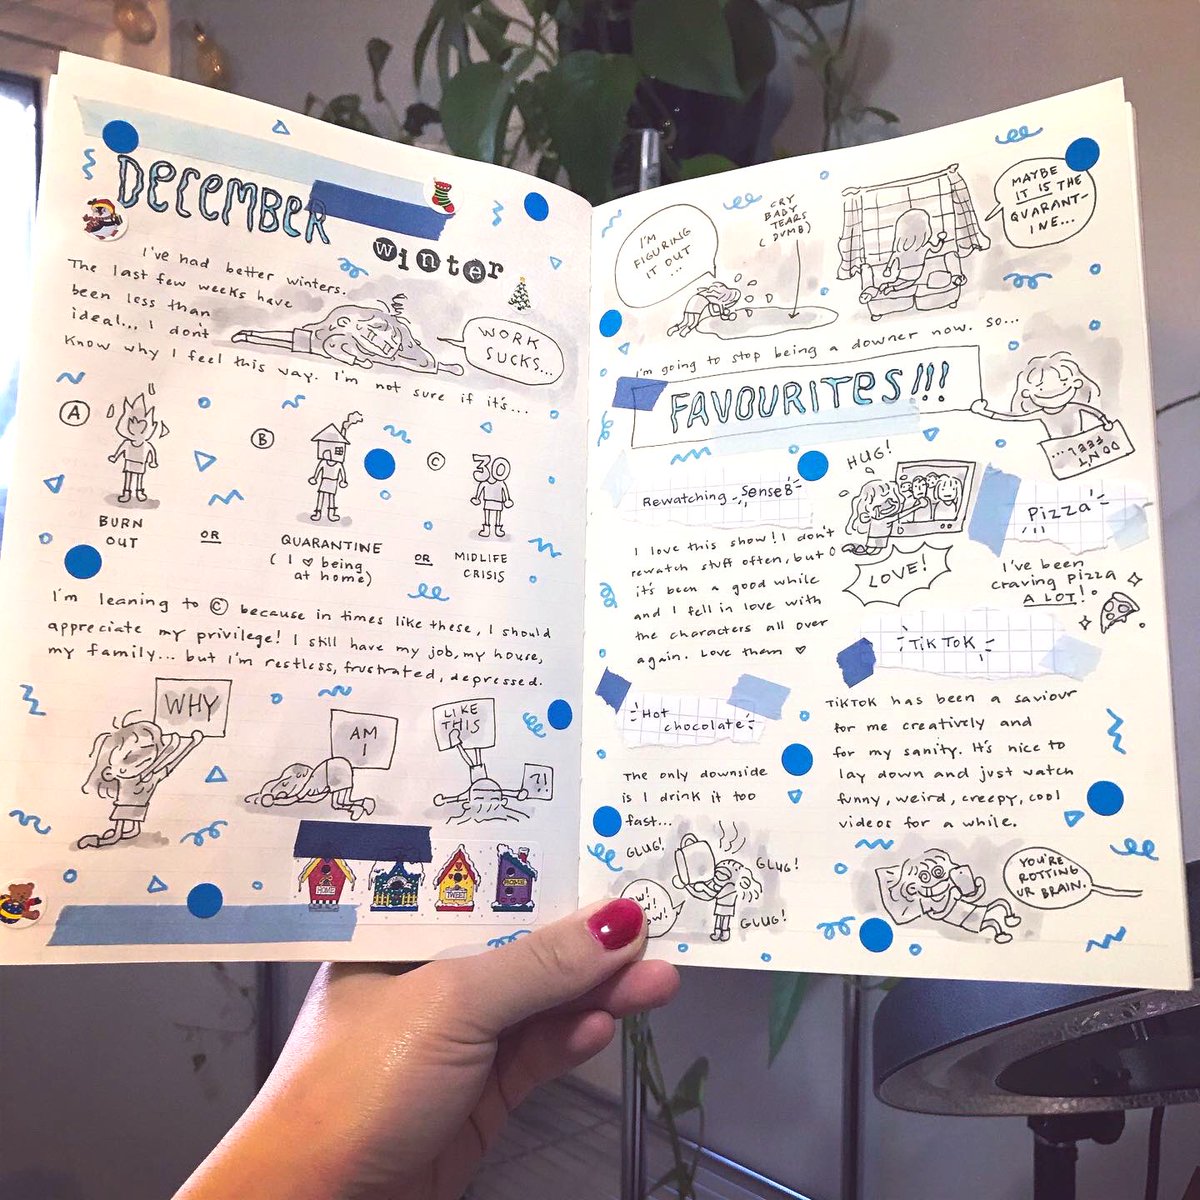 DECEMBER
winter
I've had better winters.
The last few weeks have
been less than
ideal... I don't
know why I feel this way. I'm not sure if it's...
WORK
SUCKS...
A
BURN
OUT
OR
B
QUARANTINE
(I ♥ being
at home)
OR
C
30
MIDLIFE
CRISIS
I'm leaning to C because in times like these, I should
appreciate my privilege! I still have my job, my house,
my family... but I'm restless, frustrated, depressed.
WHY
AM
I
LIKE
THIS
?!
HOME
TWEET
I'M
FIGURING
IT OUT
...
CRY
BABY
TEARS
(DUMB)
MAYBE
IT IS THE
QUARANT-
INE...
I'm going to stop being a downer now. So...
FAVOURITES!!!
DON'T
FEEL...
Rewatching Sense8
I love this show! I don't
rewatch stuff often, but
it's been a good while
and I fell in love with
the characters all over
again. Love them ♡
HUG!
LOVE!
Pizza
I've been
craving pizza
A LOT!
Hot
chocolate
The only downside
is I drink it too
fast...
GLUG!
GLUG!
GLUG!
TIKTOK
TikTok has been a saviour
for me creatively and
for my sanity. It's nice to
lay down and just watch
funny, weird, creepy, cool
videos for a while.
YOU'RE
ROTTING
UR BRAIN.